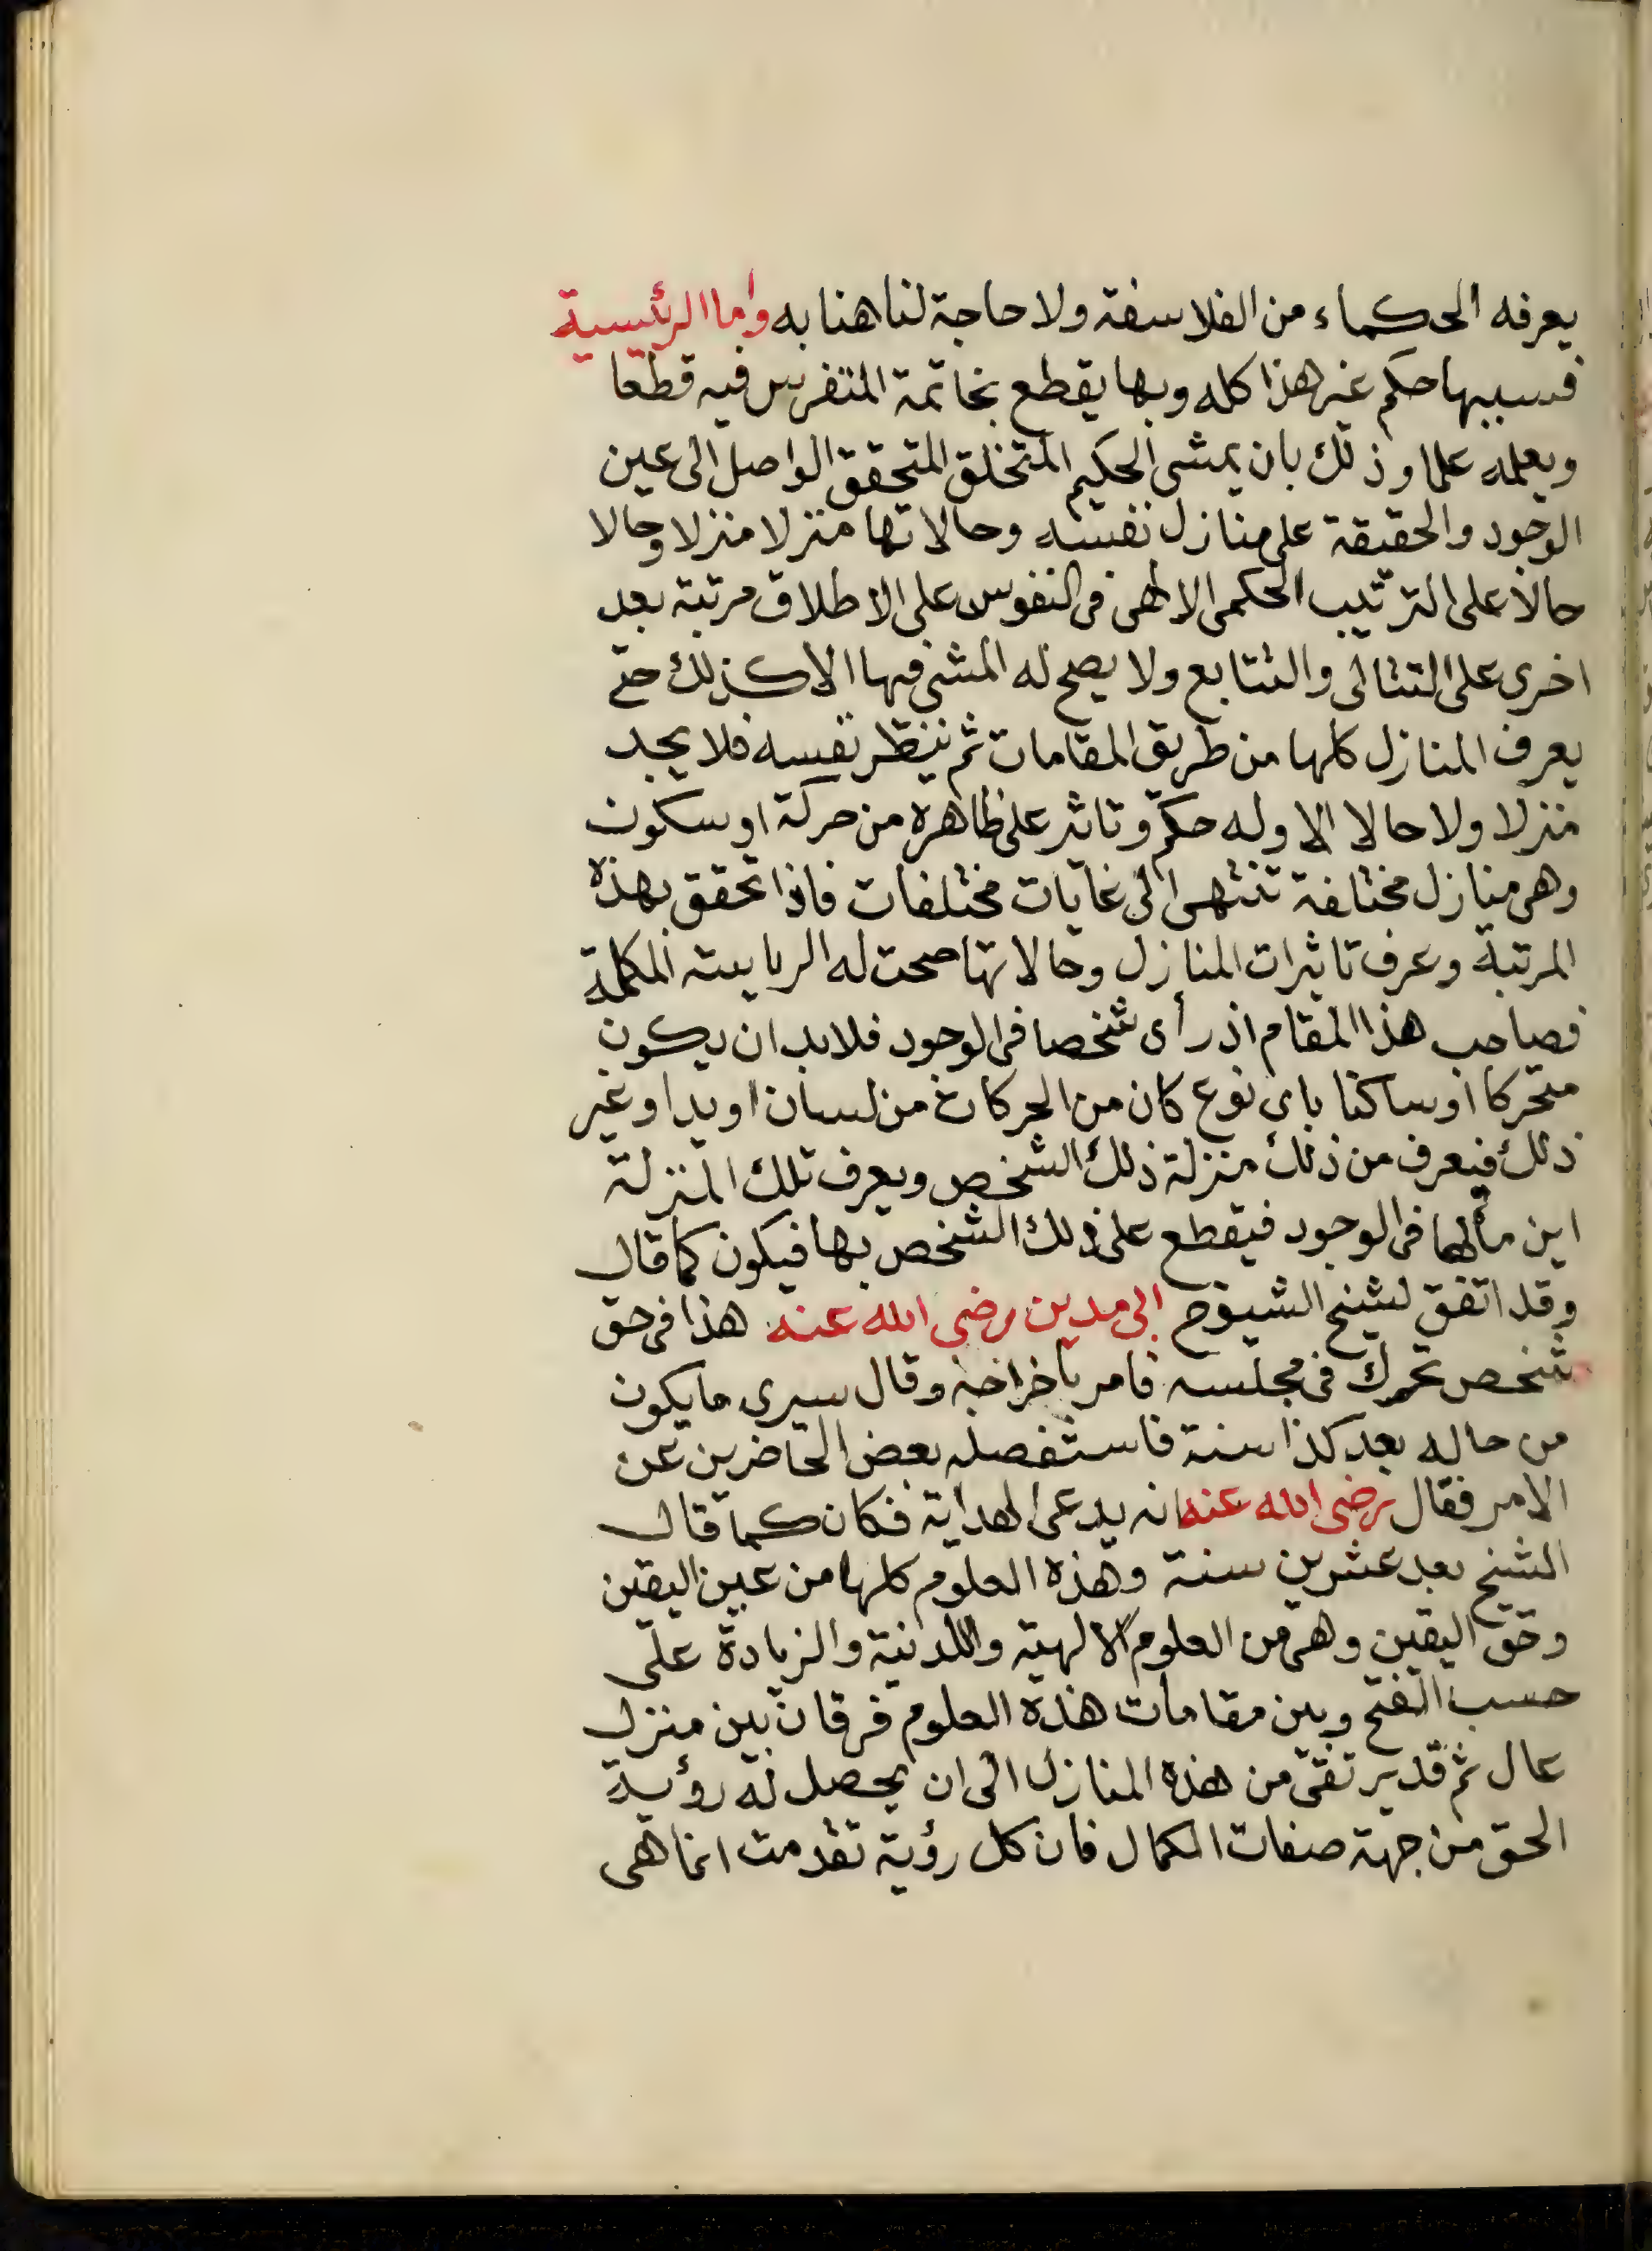 يعرفه الحكماء من الفلاسفة ولا حاجة لنا هنا به واما الرئيسية
فسببها حكم غير هذا كله وبها يقطع بخاتمة المتفرس فيه قطعا
ويعلمه علما وذلك بان يمشى الحكيم المتخلق المتحقق الواصل الى عين
الوجود والحقيقة على منازل نفسه وحالاتها منزلا منزلا وحالا
حالا على الترتيب الحكمى الالهى فى النفوس على الاطلاق مرتبة بعد
اخرى على التتالى والتتابع ولا يصح له المشى فيها الا كذلك حتى
يعرف المنازل كلها من طريق المقامات ثم ينظر نفسه فلا يجد
منزلا ولا حالا الا وله حكم وتاثر على ظاهره من حركة او سكون
وهى منازل مختلفة تنتهى الى غايات مختلفات فاذا تحقق بهذه
المرتبة وعرف تاثيرات المنازل وحالاتها صحت له الربابيته المكملة
فصاحب هذا المقام اذ رأى شخصا فى الوجود فلا بد ان يكون
متحركا او ساكنا باى نوع كان من الحركات من لسان او يد او غير
ذلك فيعرف من ذلك منزلة ذلك الشخص ويعرف تلك المنزلة
اين مآلها فى الوجود فيقطع على ذلك الشخص بها فيكون كما قال
وقد اتفق لشيخ الشيوخ ابى مدين رضى الله عنه هذا فى حق
شخص تحرك فى مجلسه فامر باخراجه وقال سيرى ما يكون
من حاله بعد كذا سنة فاستفصله بعض الحاضرين عن
الامر فقال رضى الله عنه انه يدعى الهداية فكان كما قال
الشيخ بعد عشرين سنة وهذه العلوم كلها من عين اليقين
وحق اليقين وهى من العلوم الالهية واللدنية والزيادة على
حسب الفتح وبين مقامات هذه العلوم فرقان بين منزل
عال ثم قد يرتقى من هذه المنازل الى ان يحصل له رؤية
الحق من جهة صفات الكمال فان كل رؤية تقدمت انما هى